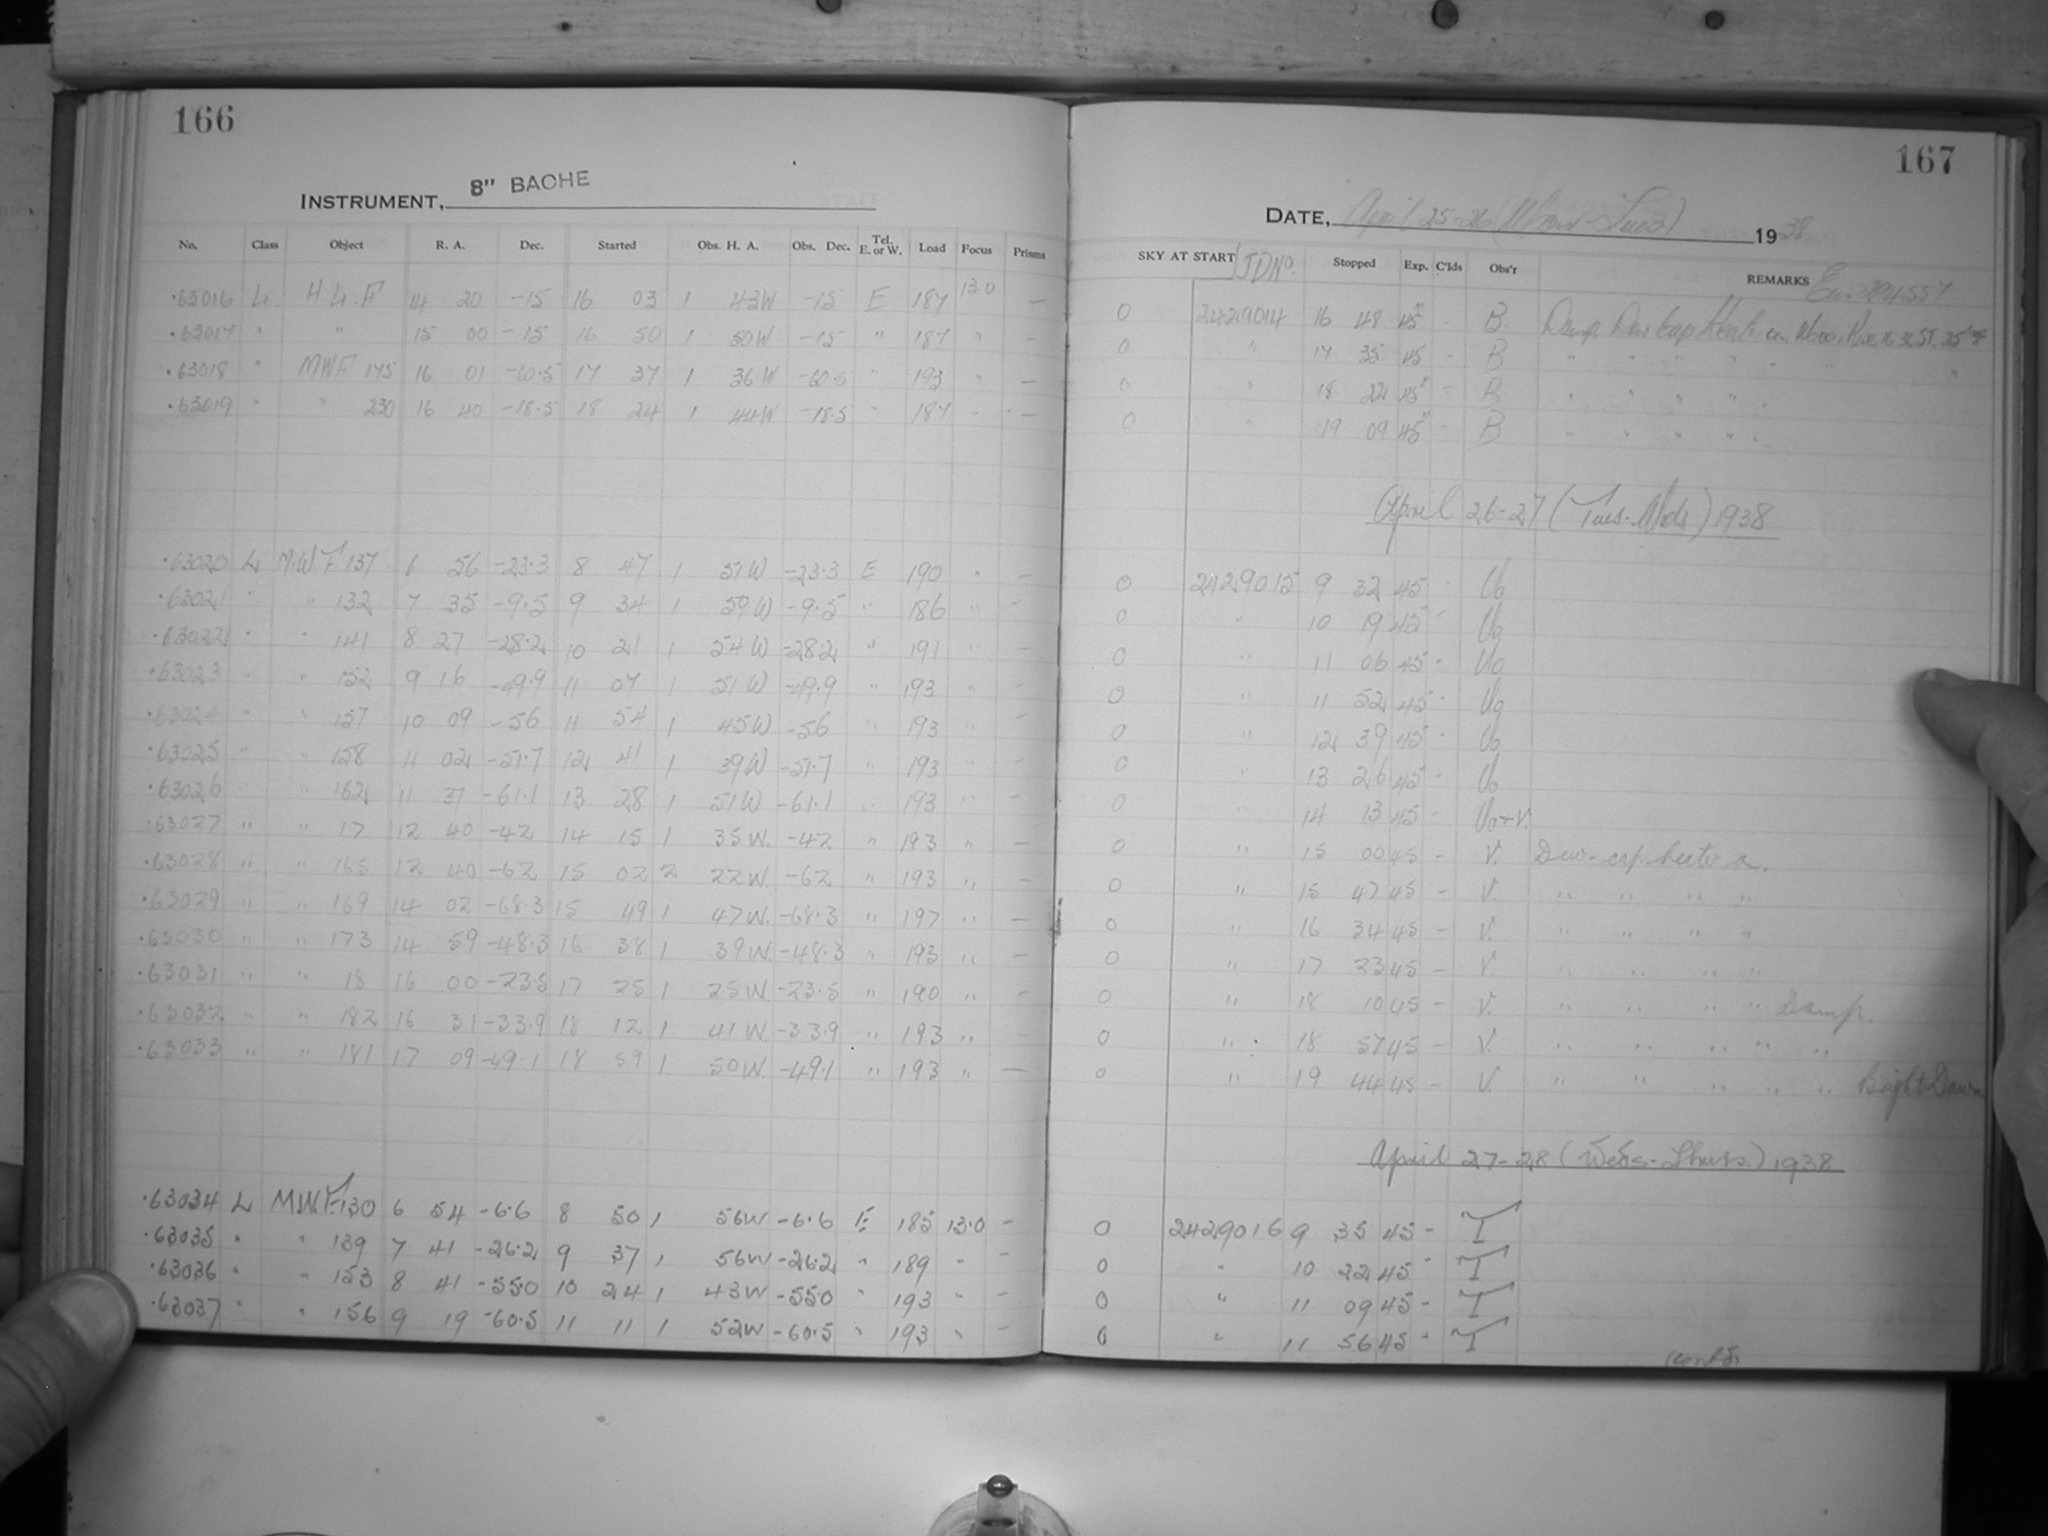 166
INSTRUMENT, 8" BACHE
No. Class Object R. A. Dec. Started Obs. H. A. Obs. Dec. Tel. E. or W. Load Focus Prisms
.63016 L H L F 14 20 -15 16 03 1 43W -15 E 187 13.0 —
.63017 " " 15 00 -15 16 50 1 50W -15 " 187 " —
.63018 " MWF 175 16 01 -60.5 17 37 1 36W -60.5 " 193 " —
.63019 " " 230 16 40 -18.5 18 24 1 44W -18.5 " 187 " —
.63020 L M.W.F 137 6 56 -23.3 8 47 1 51W -23.3 E 190 " —
.63021 " " 132 7 35 -9.5 9 34 1 59W -9.5 " 186 " —
.63022 " " 141 8 27 -28.2 10 21 1 54W -28.2 " 191 " —
.63023 " " 152 9 16 -49.9 11 07 1 51W -49.9 " 193 " —
.63024 " " 157 10 09 -56 11 54 1 45W -56 " 193 " —
.63025 " " 158 11 02 -57.7 12 41 1 39W -57.7 " 193 " —
.63026 " " 162 11 37 -61.1 13 28 1 51W -61.1 " 193 " —
.63027 " " 17 12 40 -42 14 15 1 35W. -42 " 193 " —
.63028 " " 165 12 40 -62 15 02 2 22W. -62 " 193 " —
.63029 " " 169 14 02 -68.3 15 49 1 47W. -68.3 " 197 " —
.63030 " " 173 14 59 -48.3 16 38 1 39W. -48.3 " 193 " —
.63031 " " 18 16 00 -23.5 17 25 1 25W. -23.5 " 190 " —
.63032 " " 182 16 31 -33.9 18 12 1 41W. -33.9 " 193 " —
.63033 " " 181 17 09 -49.1 18 59 1 50W. -49.1 " 193 " —
.63034 L M.W.F. 130 6 54 -6.6 8 50 1 56W -6.6 E 185 13.0 —
.63035 " " 139 7 41 -26.2 9 37 1 56W -26.2 " 189 " —
.63036 " " 153 8 41 -55.0 10 24 1 43W -55.0 " 193 " —
.63037 " " 156 9 19 -60.5 11 11 1 52W -60.5 " 193 " —
167
DATE, April 25-26 (Mon-Tues) 1938
SKY AT START JDNo. Stopped Exp. C'lds Obs'r REMARKS
0 2429014 16 48 45 - B. Damp. Dew Cap Heater on.
0 " 17 35 45 - B " " " "
0 " 18 22 45 - B " " " "
0 " 19 09 45 - B " " " "
April 26-27 (Tues-Weds) 1938
0 2429015 9 32 45 -
0 " 10 19 45 -
0 " 11 06 45 -
0 " 11 52 45 -
0 " 12 39 45 -
0 " 13 26 45 -
0 " 14 13 45 -
0 " 15 00 45 - V. Dew-cap heater on.
0 " 15 47 45 - V. " " " "
0 " 16 34 45 - V. " " " "
0 " 17 23 45 - V. " " " "
0 " 18 10 45 - V. " " " " Damp.
0 " 18 57 45 - V. " " " " "
0 " 19 44 45 - V. " " " " " Bright Dawn
April 27-28 (Weds-Thurs.) 1938
0 2429016 9 35 45 - T
0 " 10 22 45 - T
0 " 11 09 45 - T
0 " 11 56 45 - T
(contd)